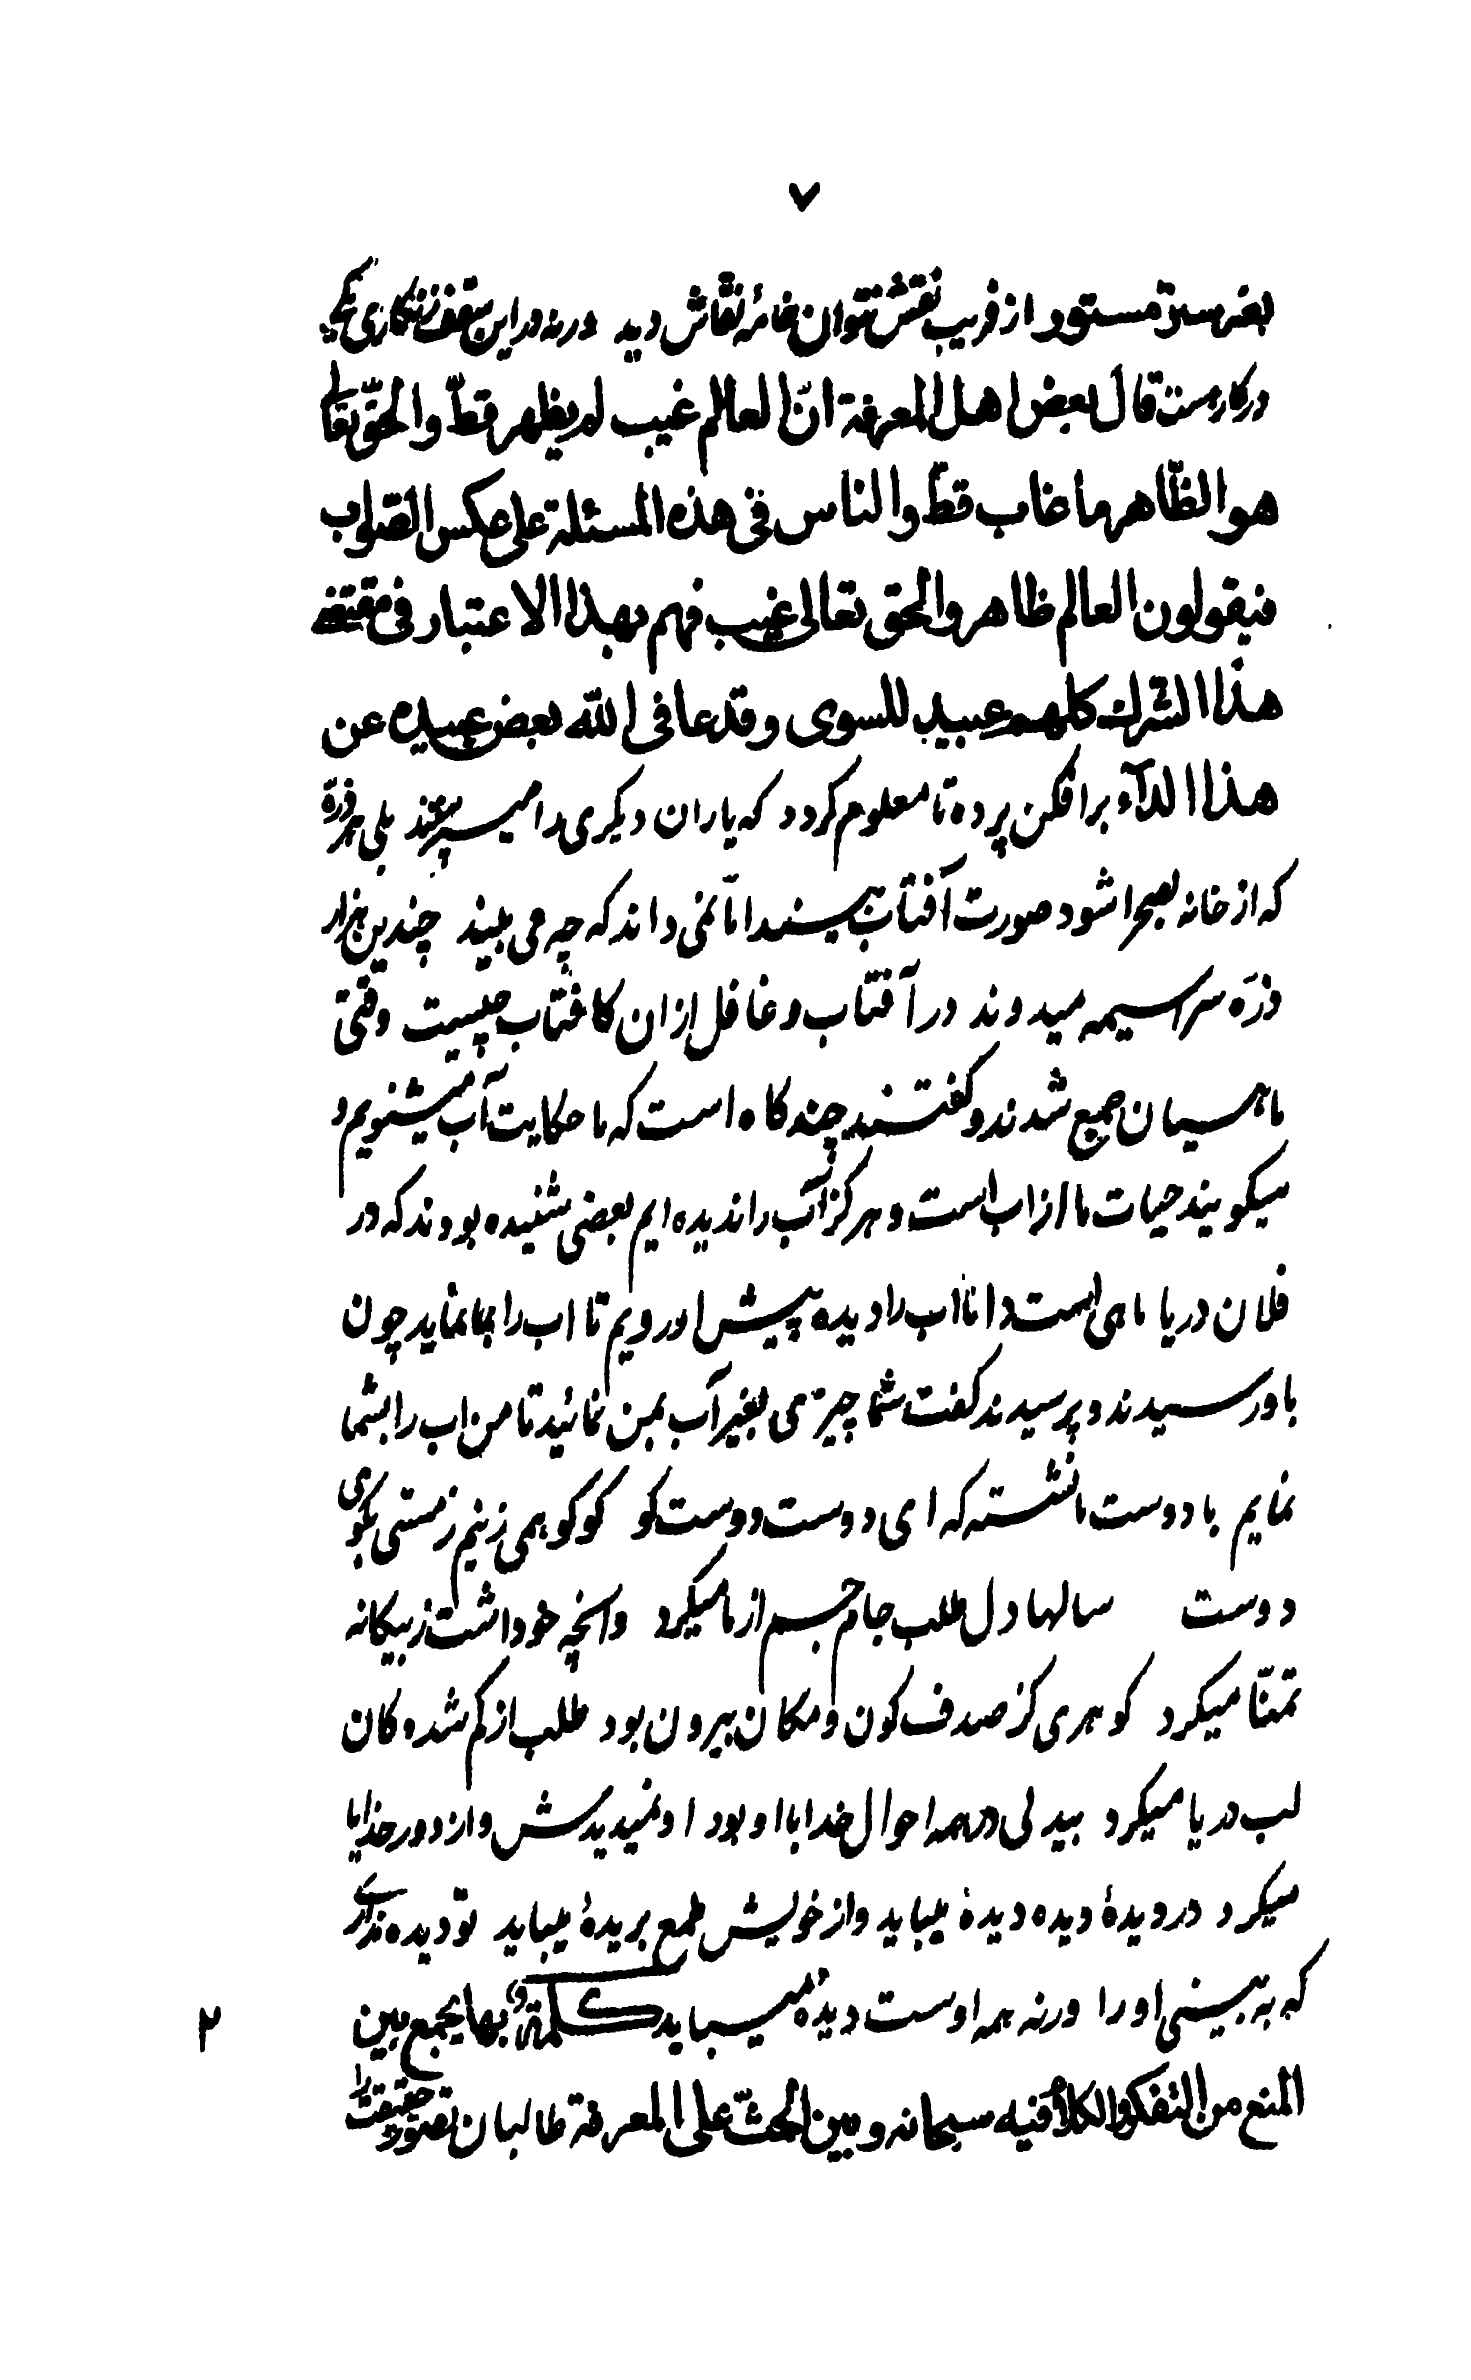 ۷
بغیر سترة مستور از فریب نقش نتوان خامهٔ نقاش دید ورنه در این سقف زنگاری یکی
در کارست قال بعض اهل المعرفة انّ العالم غیب لم یظهر قطّ والحقّ تعالی
هو الظّاهر ما غاب قطّ والناس فی هذه المسئلة علی عکس الصّواب
فیقولون العالم ظاهر والحق تعالی غیب فهم بهذا الاعتبار فی مقتضی
هذا الشرك کلهم عبید للسوی وقد عافی الله بعض عبیده عن
هذا الدآء برافکن پرده تا معلوم کردد که یاران دیکری را میپرستند بلی هر ذرّه
که از خانه بصحرا شود صورت آفتاب بیند امّا نمی داند که چه می بیند چندین هزار
ذرّه سراسیمه میدوند در آفتاب و غافل از ان کافتاب چیست وقتی
ماهیان جمع شدند و کفتند چند کاه است که ما حکایت آب میشنویم و
میکویند حیات ما از اب است و هرکز آب را ندیده ایم بعضی شنیده بودند که در
فلان دریا ماهی است دانا اب را دیده پیش او رویم تا اب را بما نماید چون
باو رسیدند و پرسیدند کفت شما چیزی بغیر آب بمن نمائید تا من اب را بشما
نمایم با دوست ما نشسته که ای دوست دوست کو کو کو همی زنیم ز مستی بکوی
دوست سالها دل طلب جام جم از ما میکرد وانچه خود داشت ز بیکانه
تمنّا میکرد کوهری کز صدف کون و مکان بیرون بود طلب از کم شده کان
لب دریا میکرد بیدلی در همه احوال خدا با او بود او نمیدیدش و از دور خدایا
میکرد در دیدهٔ دیده دیدهٔ میباید واز خویش طمع بریدهٔ میباید تو دیده نداری
که به بینی او را ورنه همه اوست دیدهٔ میباید کلمة بها یجمع بین
۲
المنع من التفکر والکلام فیه سبحانه وبین الحثّ علی المعرفة طالبان تصوّر حقیقت را